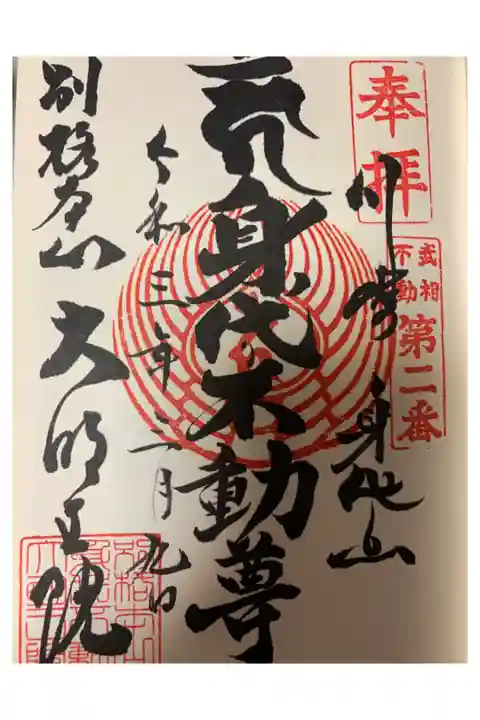 奉拝
武相
不動
第二番
川崎 身代山
身代不動尊
令和三年三月九日
別格本山 大明王院